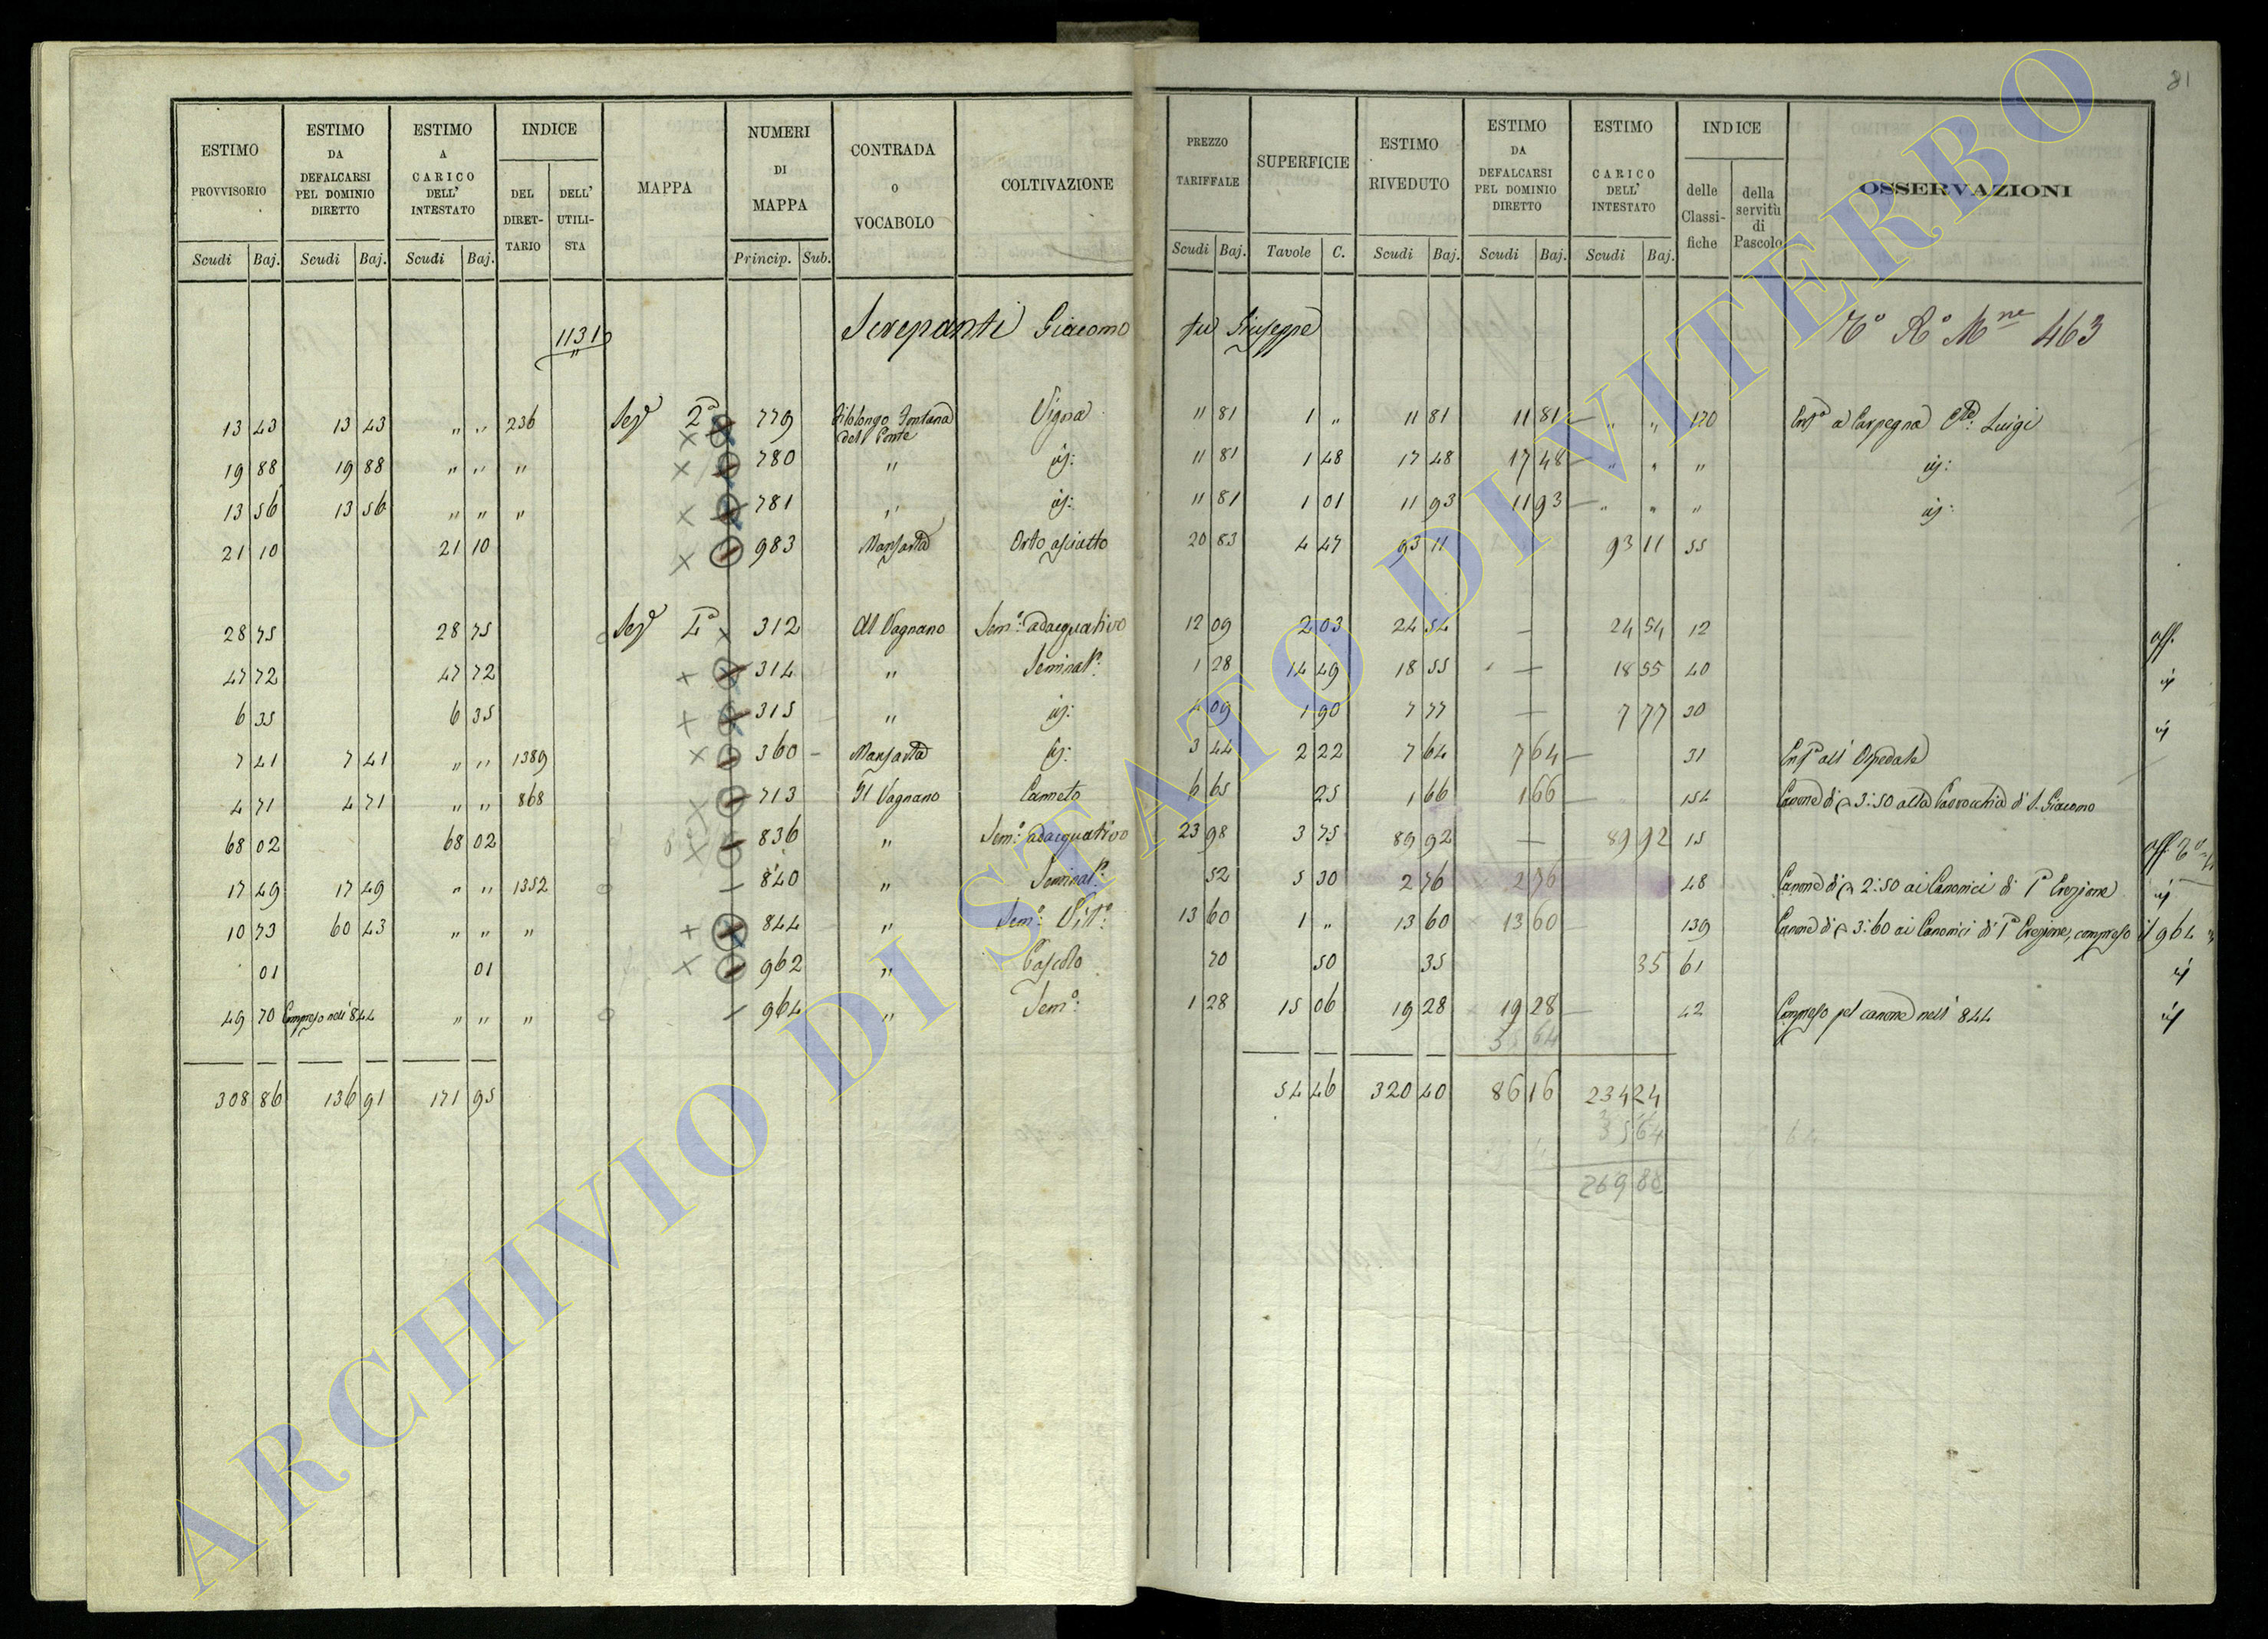 81
ESTIMO PROVVISORIO | ESTIMO DA DEFALCARSI PEL DOMINIO DIRETTO | ESTIMO A CARICO DELL' INTESTATO | INDICE DEL DIRETTARIO | DELL' UTILISTA | MAPPA | NUMERI DI MAPPA | CONTRADA O VOCABOLO | COLTIVAZIONE | PREZZO TARIFFALE | SUPERFICIE | ESTIMO RIVEDUTO | ESTIMO DA DEFALCARSI PEL DOMINIO DIRETTO | ESTIMO A CARICO DELL' INTESTATO | INDICE delle Classifiche | della servitù di Pascolo | OSSERVAZIONI
Scudi Baj. | Scudi Baj. | Scudi Baj. | Princip. Sub. | Scudi Baj. | Tavole C. | Scudi Baj. | Scudi Baj. | Scudi Baj.
1131 Screpanti Giacomo fu Giuseppe 463
13 43 | 13 43 | " " | 236 | Sez 2a | 779 | Filolongo Fontana dell Ponte | Vigna | 11 81 | 1 " | 11 81 | 11 81 | " " | 170 | Enfa a Carpegna Cte: Luigi
19 88 | 19 88 | " " | " | 780 | " | id: | 11 81 | 1 48 | 17 48 | 17 48 | " " | " | id:
13 56 | 13 56 | " " | " | 781 | " | id: | 11 81 | 1 01 | 11 93 | 11 93 | " " | " | id:
21 10 | 21 10 | 983 | Orto asciutto | 20 83 | 4 47 | 93 11 | 93 11 | 55
28 75 | 28 75 | Sez | 312 | Al Vagnano | Semo: adacquativo | 12 09 | 2 03 | 24 54 | — | 24 54 | 12
47 72 | 47 72 | 314 | " | Seminato: | 1 28 | 14 49 | 18 55 | — | 18 55 | 40 | id
6 35 | 6 35 | 315 | " | id: | 4 09 | 1 90 | 7 77 | — | 7 77 | 30 | id
7 41 | 7 41 | " " | 1389 | 360 | id: | 3 44 | 2 22 | 7 64 | 7 64 | 31 | Enfa all' Ospedale
4 71 | 4 71 | " " | 868 | 713 | Il Vagnano | Canneto | 6 65 | 25 | 1 66 | 1 66 | 154 | Canone di 3:50 alla Parrocchia di S. Giacomo
68 02 | 68 02 | 836 | " | Semo: adacquativo | 23 98 | 3 75 | 89 92 | — | 89 92 | 15
17 49 | 17 49 | " " | 1352 | 840 | " | Seminato: | 52 | 5 30 | 2 76 | 2 76 | 48 | Canone di 2:50 ai Canonici di Pa Erezione | id
10 73 | 60 43 | " " | " | 844 | " | Semo: Vito: | 13 60 | 1 " | 13 60 | 13 60 | 139 | Canone di 3:60 ai Canonici di Pa Erezione, compreso il 964
01 | 01 | 962 | " | Pascolo | 70 | 50 | 35 | 35 | 61 | id
49 70 | Compreso nell' 844 | " " | " | 964 | " | Semo: | 1 28 | 15 06 | 19 28 | 19 28 | 42 | Compreso pel canone nell' 844 | id
308 86 | 136 91 | 171 95 | 54 46 | 320 40 | 86 16 | 234 24
35 64
269 88
ARCHIVIO DI STATO DI VITERBO